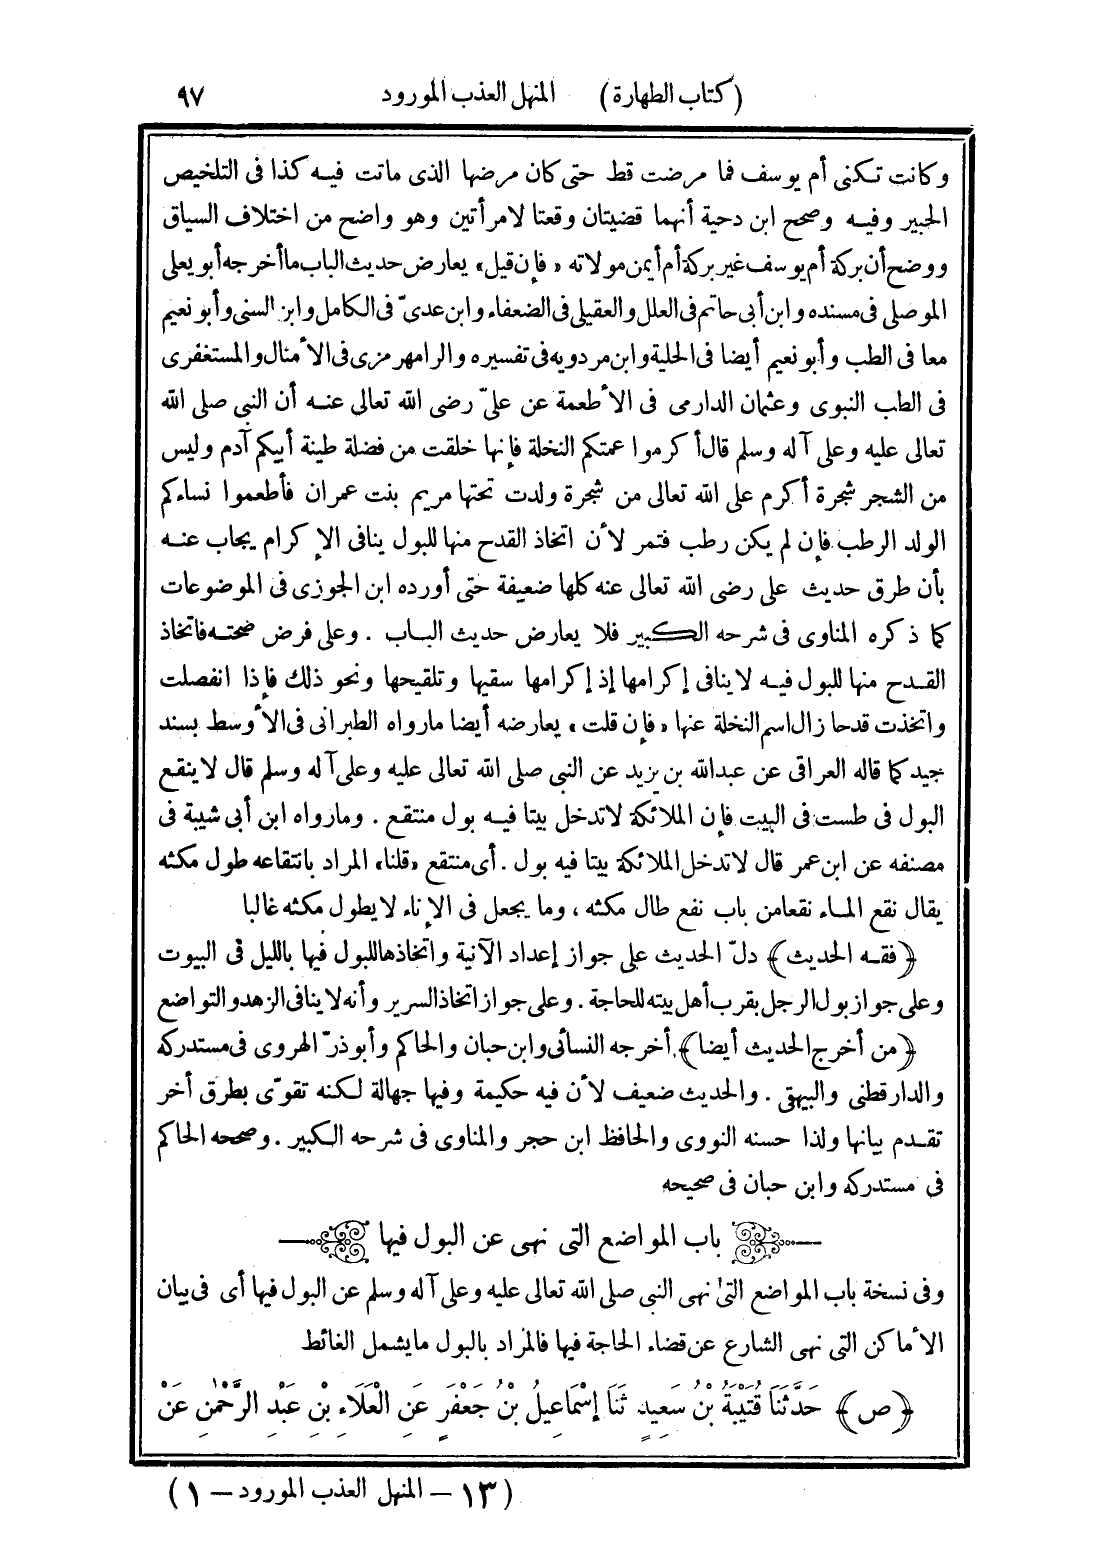 (كتاب الطهارة) المنهل العذب المورود ٩٧
وكانت تكنى أم يوسف فما مرضت قط حتى كان مرضها الذى ماتت فيه كذا فى التلخيص
الحبير وفيه وصحح ابن دحية أنهما قضيتان وقعتا لامرأتين وهو واضح من اختلاف السياق
ووضح أن بركة أم يوسف غير بركة أم أيمن مولاته «فإن قيل» يعارض حديث الباب ما أخرجه أبو يعلى
الموصلى فى مسنده وابن أبى حاتم فى العلل والعقيلى فى الضعفاء وابن عدىّ فى الكامل وابن السنى وأبو نعيم
معا فى الطب وأبو نعيم أيضا فى الحلية وابن مردويه فى تفسيره والرامهرمزى فى الأمثال والمستغفرى
فى الطب النبوى وعثمان الدارمى فى الأطعمة عن علىّ رضى الله تعالى عنه أن النبى صلى الله
تعالى عليه وعلى آله وسلم قال أكرموا عمتكم النخلة فإنها خلقت من فضلة طينة أبيكم آدم وليس
من الشجر شجرة أكرم على الله تعالى من شجرة ولدت تحتها مريم بنت عمران فأطعموا نساءكم
الولد الرطب فإن لم يكن رطب فتمر لأن اتخاذ القدح منها للبول ينافى الإكرام يجاب عنه
بأن طرق حديث على رضى الله تعالى عنه كلها ضعيفة حتى أورده ابن الجوزى فى الموضوعات
كما ذكره المناوى فى شرحه الكبير فلا يعارض حديث الباب . وعلى فرض صحته فاتخاذ
القدح منها للبول فيه لا ينافى إكرامها إذ إكرامها سقيها وتلقيحها ونحو ذلك فإذا انفصلت
واتخذت قدحا زال اسم النخلة عنها «فإن قلت» يعارضه أيضا مارواه الطبرانى فى الأوسط بسند
جيد كما قاله العراقى عن عبدالله بن يزيد عن النبى صلى الله تعالى عليه وعلى آله وسلم قال لا ينقع
البول فى طست فى البيت فإن الملائكة لاتدخل بيتا فيه بول منتقع . ومارواه ابن أبى شيبة فى
مصنفه عن ابن عمر قال لاتدخل الملائكة بيتا فيه بول . أى منتقع «قلنا» المراد بانتقاعه طول مكثه
يقال نقع الماء نقعا من باب نفع طال مكثه ، وما يجعل فى الإناء لايطول مكثه غالبا
﴿فقه الحديث﴾ دلّ الحديث على جواز إعداد الآنية واتخاذها للبول فيها بالليل فى البيوت
وعلى جواز بول الرجل بقرب أهل بيته للحاجة . وعلى جواز اتخاذ السرير وأنه لا ينافى الزهد والتواضع
﴿من أخرج الحديث أيضا﴾ أخرجه النسائى وابن حبان والحاكم وأبو ذرّ الهروى فى مستدركه
والدارقطنى والبيهقى . والحديث ضعيف لأن فيه حكيمة وفيها جهالة لكنه تقوّى بطرق أخر
تقدم بيانها ولذا حسنه النووى والحافظ ابن حجر والمناوى فى شرحه الكبير . وصححه الحاكم
فى مستدركه وابن حبان فى صحيحه
باب المواضع التى نهى عن البول فيها
وفى نسخة باب المواضع التى نهى النبى صلى الله تعالى عليه وعلى آله وسلم عن البول فيها أى فى بيان
الأماكن التى نهى الشارع عن قضاء الحاجة فيها فالمراد بالبول مايشمل الغائط
﴿ص﴾ حَدَّثَنَا قُتَيْبَةُ بْنُ سَعِيدٍ ثَنَا إِسْمَاعِيلُ بْنُ جَعْفَرٍ عَنِ الْعَلَاءِ بْنِ عَبْدِ الرَّحْمٰنِ عَنْ
(١٣ – المنهل العذب المورود – ١)